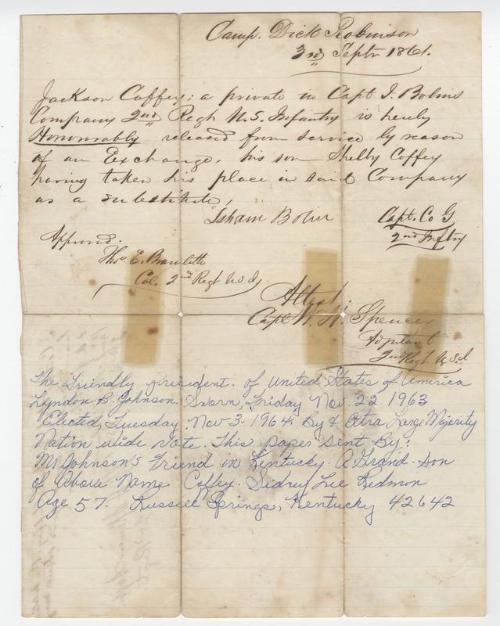 Camp. Dick Robinson
3rd Septr 1861.
Jackson Coffey; a private in Capt I. Bolins
Company 2nd Regt U.S. Infantry is hereby
Honourably released from service by reason
of an Exchange, his son Shelby Coffey
having taken his place in said Company
as a substitute,
Isham Bolin Capt. Co G
2nd Infty
Approved.
Thos E. Bramlette
Col. 2nd Regt
Attest;
Capt W. H. Spencer
2nd Regt
The Friendly president. of United States of America
Lyndon B. Johnson. Sworn Friday Nov-22 1963
Elected Tuesday: Nov-3-1964. By Large Majority
Nation wide vote. This paper sent By:
Mr Johnson's Friend in Kentucky. A Grand-Son
of Above Name Coffey. Sidney Lee Redmon
Age 57. Russell Springs, Kentucky 42642